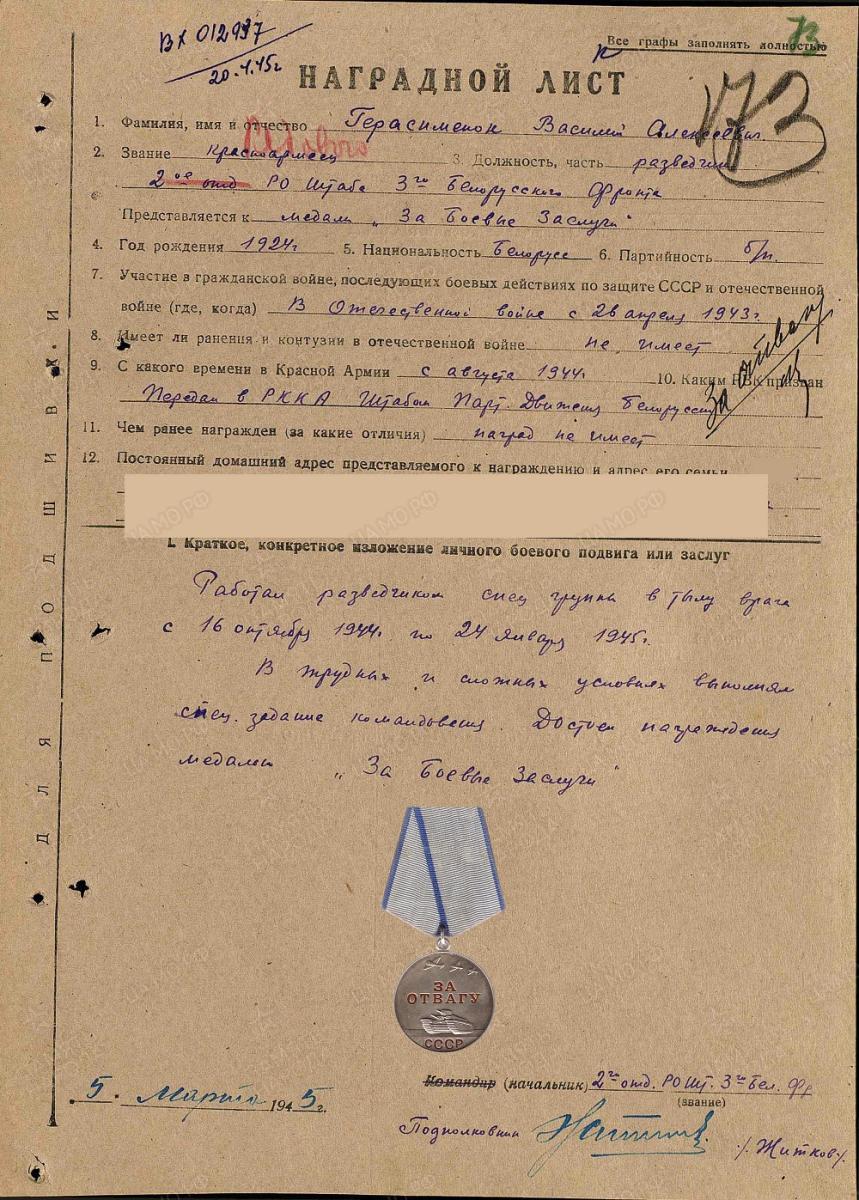 Вх 012997
20.4.45г
73
Все графы заполнять полностью
НАГРАДНОЙ ЛИСТ
173
1. Фамилия, имя и отчество Герасименок Василий Алексеевич.
2. Звание красноармеец 3. Должность, часть разведчик
2ое отд РО Штаба 3го Белорусского Фронта
Представляется к медали „За Боевые Заслуги“
4. Год рождения 1924г 5. Национальность Белорусс 6. Партийность б/п.
7. Участие в гражданской войне, последующих боевых действиях по защите СССР и отечественной
войне (где, когда) В Отечественной войне с 28 апреля 1943г.
8. Имеет ли ранения и контузии в отечественной войне не имеет
За отвагу
9. С какого времени в Красной Армии с августа 1944г. 10. Каким РВК призван
Передан в РККА Штабом Парт. Движения Белоруссии
11. Чем ранее награжден (за какие отличия) наград не имеет
12. Постоянный домашний адрес представляемого к награждению и адрес его семьи
I. Краткое, конкретное изложение личного боевого подвига или заслуг
Работал разведчиком спец группы в тылу врага
с 16 октября 1944г. по 24 января 1945г.
В трудных и сложных условиях выполнял
спец. задание командования. Достоен награждения
медалью „За Боевые Заслуги“
ЗА
ОТВАГУ
СССР
Командир (начальник) 2го отд. РО Шт. 3го Бел. Фр
(звание)
5. Марта 1945г.
Подполковник /Житков/.
ДЛЯ ПОДШИВКИ